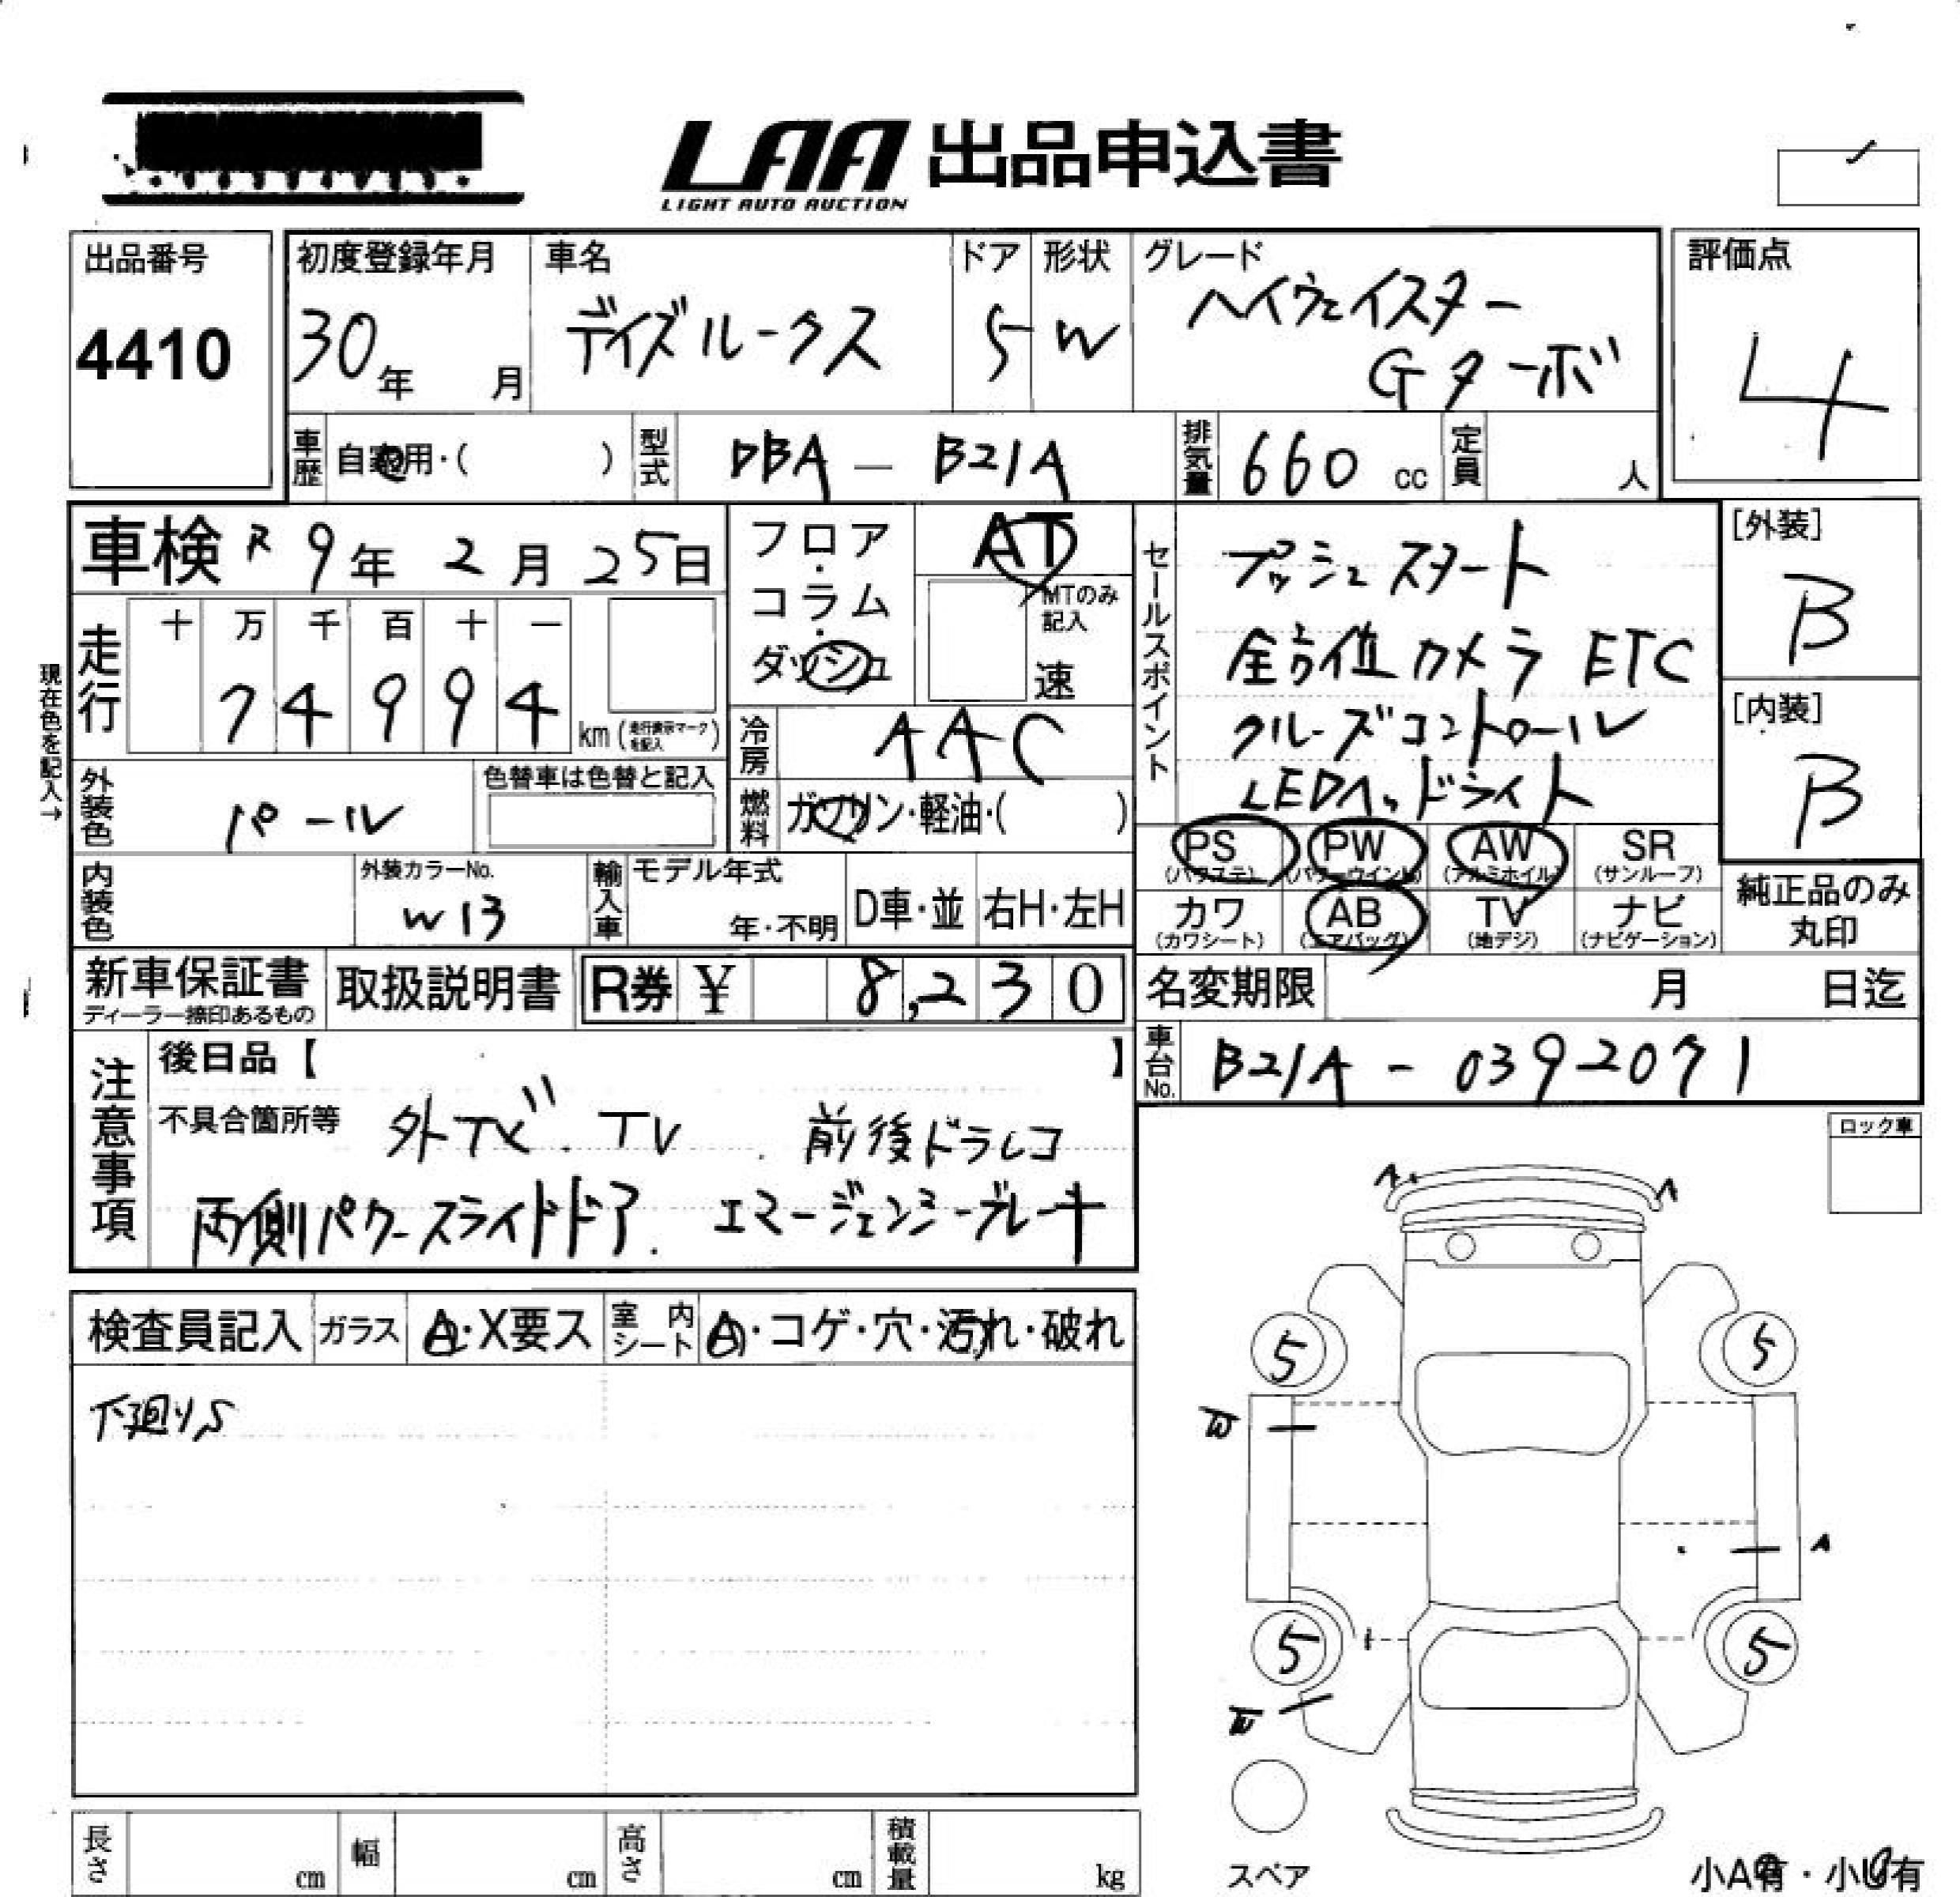 LAA 出品申込書
LIGHT AUTO AUCTION
出品番号
4410
初度登録年月
30年 月
車名
デイズルークス
ドア
5
形状
W
グレード
ハイウェイスター
Gターボ
評価点
4
車歴 自家用・( )
型式 DBA - B21A
排気量 660 cc
定員 人
車検 R 9年 2月 25日
現在色を記入→
走行
十 万 千 百 十 一
7 4 9 9 4
km (走行表示マークを記入)
フロア・コラム・ダッシュ
AT
MTのみ記入
速
冷房 AAC
燃料 ガソリン・軽油・( )
外装色 パール
色替車は色替と記入
内装色
外装カラーNo.
W13
輸入車
モデル年式
年・不明
D車・並
右H・左H
セールスポイント
プッシュスタート
全方位カメラ ETC
クルーズコントロール
LEDヘッドライト
[外装]
B
[内装]
B
PS (パワステ)
PW (パワーウインド)
AW (アルミホイル)
SR (サンルーフ)
カワ (カワシート)
AB (エアバッグ)
TV (地デジ)
ナビ (ナビゲーション)
純正品のみ
丸印
新車保証書
ディーラー捺印あるもの
取扱説明書
R券 ¥ 8,230
名変期限 月 日迄
車台No. B21A - 0392071
注意事項
後日品【 】
不具合箇所等 外ナビ. TV . 前後ドラレコ
両側パワースライドドア. エマージェンシーブレーキ
ロック車
検査員記入
ガラス A・X要ス
室内シート A・コゲ・穴・汚れ・破れ
下廻りS
A A
5 5
W
A
5 5
W
スペア
長さ cm
幅 cm
高さ cm
積載量 kg
小A有・小U有